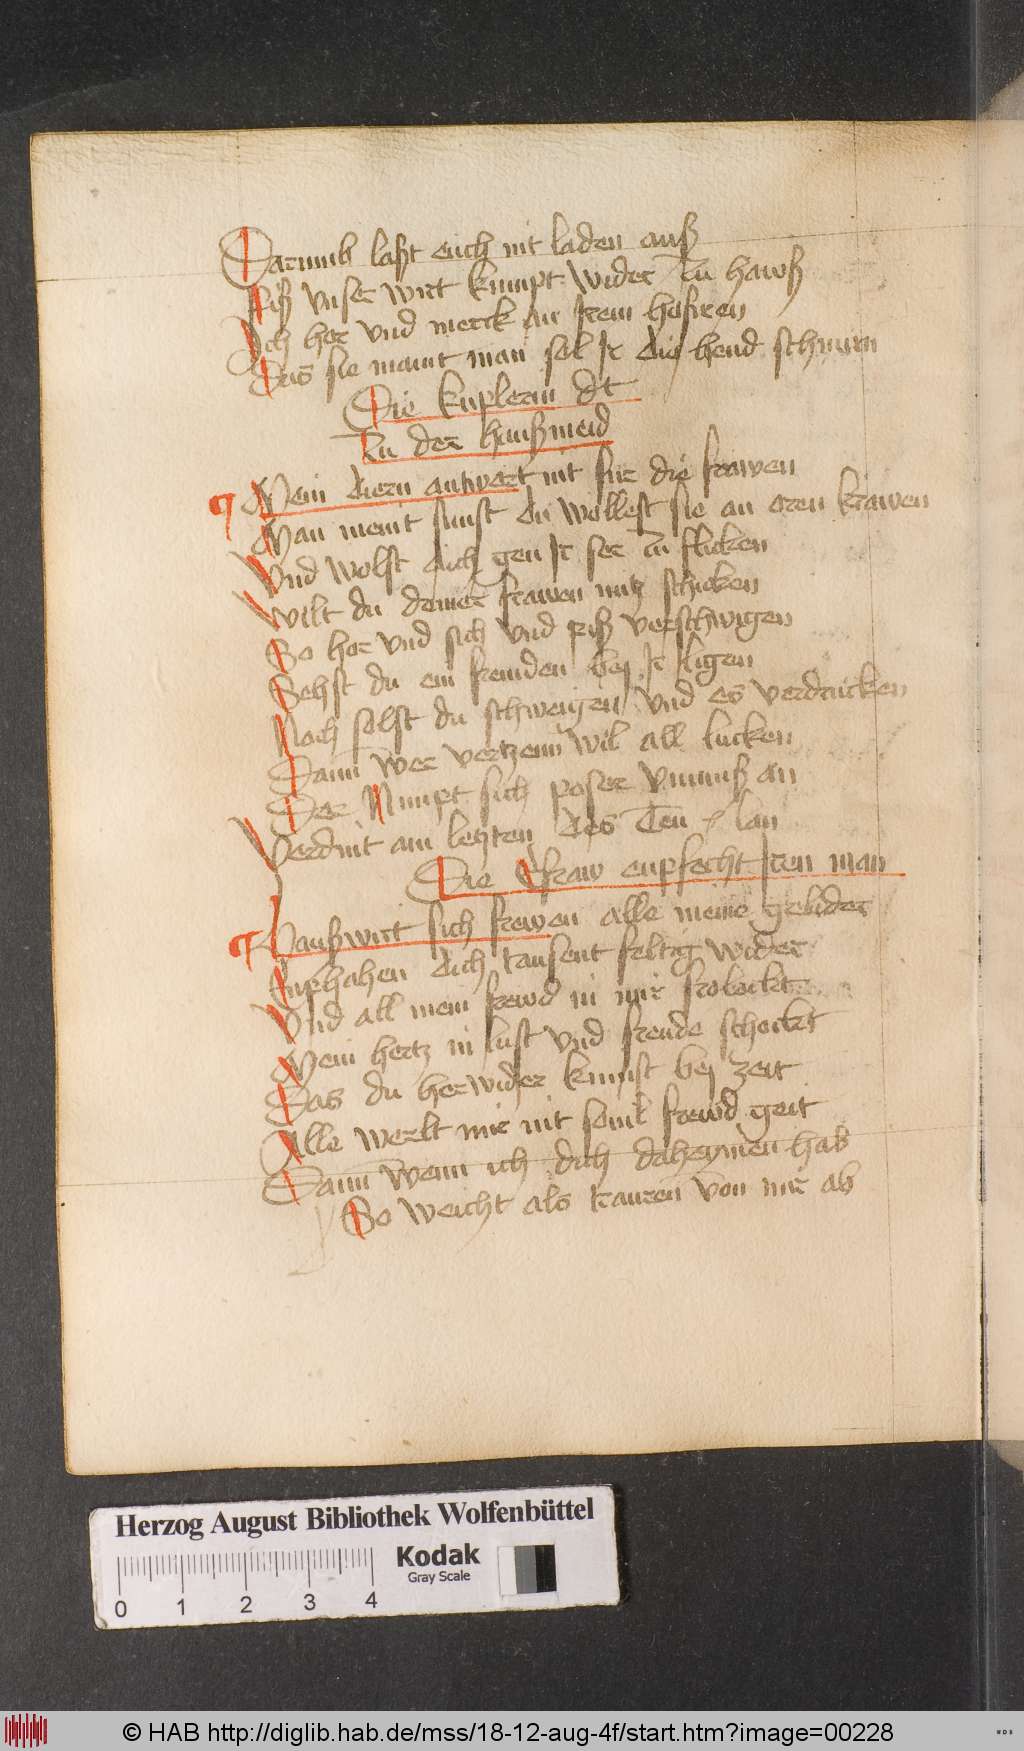 Darumb laßt euch nit laden auß
Piß vnser wirt kumpt wider zu hawß
Ich hor vnd merck an Irem hofiren
Das sie maint man sol Ir die hend schmirn
Die kuplerin dt
zu der haußmeid
Mein diern antwort nit fur die frawen
Man meint sunst du wollest sie an oren krawen
Vnd wolst dich gen Ir ser zu flicken
wilt du deiner frawen nutz schicken
So hor vnd sich vnd piß verschwigen
Sehst du ein fremden bej Ir ligen
Noch solst du schweigen vnd es verdrucken
Dann wer vertzenn wil all lucken
Der Nimpt sich poser vnmuß an
Verdint am letzten des den lan
Die fraw enpfecht Iren man
Haußwirt sich frewen alle meine gelider
Enphahen dich tausent feltig wider
Vnd all mein frewd in mir frolockt
Mein hertz in lust vnd freude schockt
Das du her wider kumst bej zeit
Alle werlt mir nit souil frewd geit
Dann wenn ich dich daheymen hab
So weicht als trauren von mir ab
Herzog August Bibliothek Wolfenbüttel
Kodak
Gray Scale
0 1 2 3 4
© HAB http://diglib.hab.de/mss/18-12-aug-4f/start.htm?image=00228